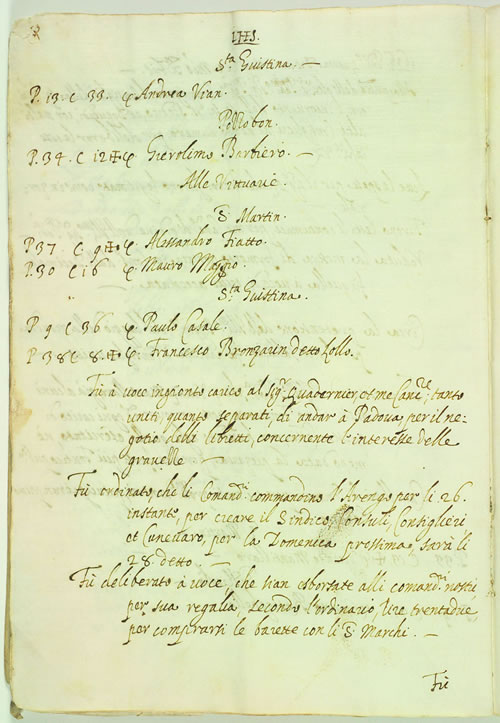 IHS.
S.ta Giustina. —
P. 13. C 33. φ Andrea Vian.
Pollobon.
P. 34. C 12 φ Gierolimo Barbiero. —
Alle Vittuarie.
S. Martin.
P 37 C 9 φ Alessandro Fiatto.
P. 30 C 16 φ Mauro
S.ta Giustina.
P 9 C 36 φ Paulo Casale.
P 38 C 8. φ Francesco Bronzarin detto Lollo.
Fù à voce ingionto carico al Sig.r Quadernier, et me Canc.re, tanto
uniti, quanto separati, di andar à Padova, per il ne-
gotio delli libretti, concernente l'interesse delle
gravelle —
Fù ordinato, che li Comand.ri commandino l'Arengo per li 26.
instante, per creare il Sindico, Consuli, Consiglieri
et per la Domenica prossima, sarà li
28. detto —
Fù deliberato à voce, che sian esborsate alli comand.ri nostri
per sua regalia, secondo l'ordinario lire trentadue,
per comprarsi le barette con li S. Marchi. —
Fù